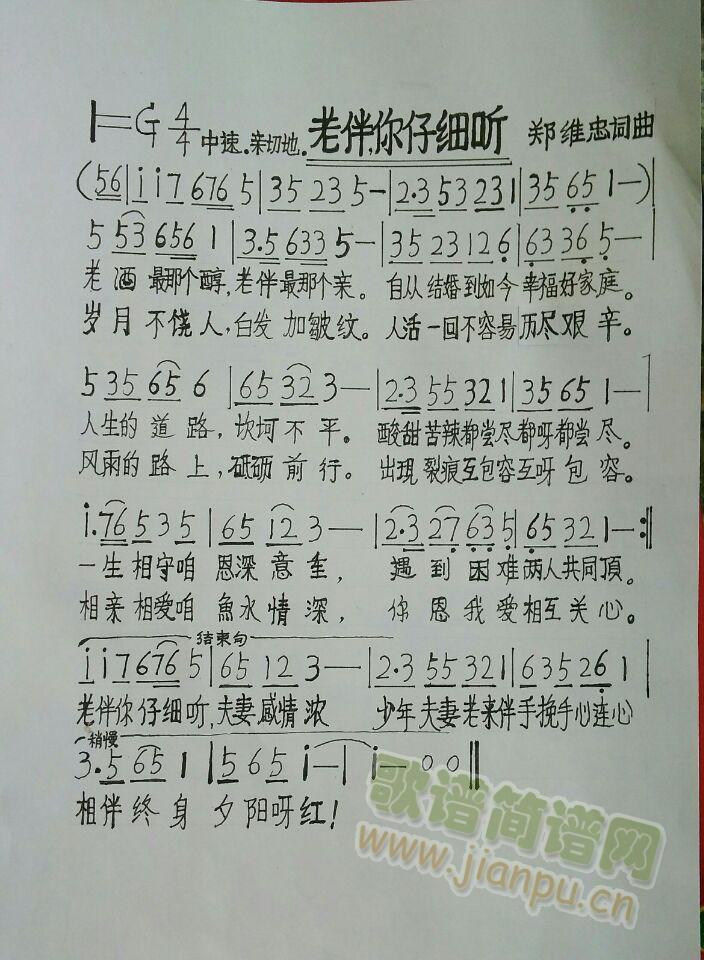 1=G 4/4 中速.亲切地. 老伴,你仔细听 郑维忠词曲
(56|i i 7 676 5|35 23 5-|2.3 53 231|35 65 1—)|
5 53 656 1|3.5 633 5—|35 23 12 6|63 36 5—
老酒最那个醇,老伴最那个亲。自从结婚到如今幸福好家庭。
岁月不饶人,白发加皱纹。人活一回不容易历尽艰辛。
5 35 65 6|65 32 3—|2.3 55 32 1|35 65 1—|
人生的道路,坎坷不平。酸甜苦辣都尝尽都呀都尝尽。
风雨的路上,砥砺前行。出現裂痕互包容互呀包容。
i.76 5 3 5|65 i2 3—|2.3 27 63 5|65 32 1—:‖
一生相守咱恩深意重,遇到困难两人共同頂。
相亲相爱咱魚水情深,你恩我爱相互关心。
结束句
i i 7 676 5|65 12 3—|2.3 55 32 1|63 52 6 1|
老伴你仔细听,夫妻感情浓 少年夫妻老来伴手挽手心连心
稍慢
3.5 65 1|5 65 i—|i—00‖
相伴终身夕阳呀红!
歌谱简谱网
www.jianpu.cn